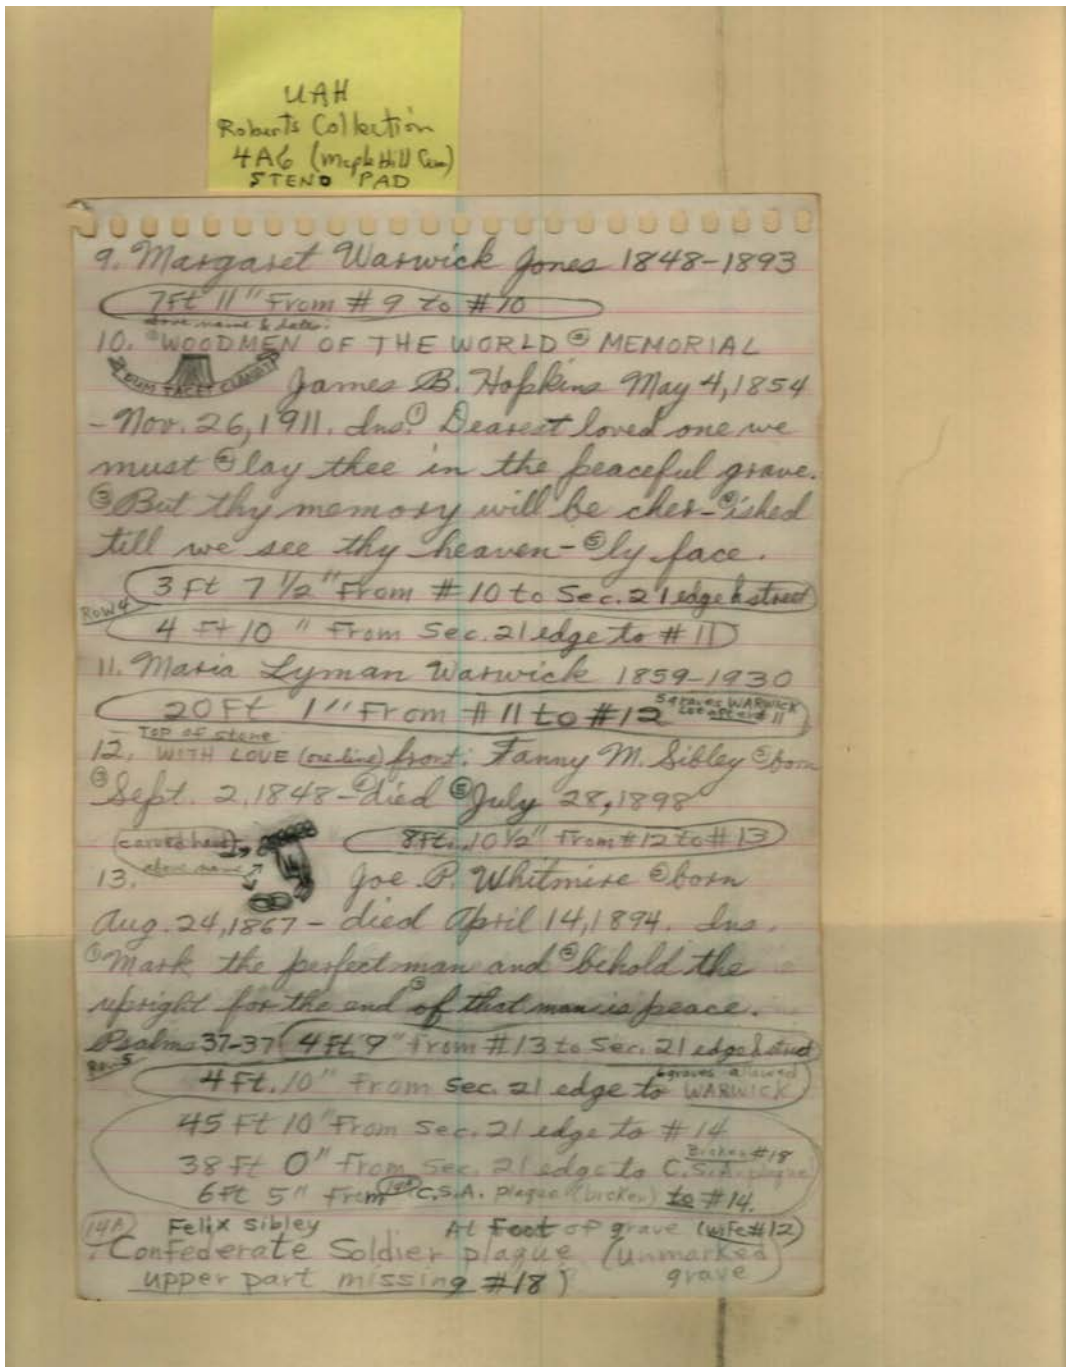 UAH
Roberts Collection
4A6 (Maple Hill Cem)
STENO PAD
9. Margaret Warwick Jones 1848-1893
7Ft 11" From #9 to #10
above name & dates:
10. ①WOODMEN OF THE WORLD ② MEMORIAL
DUM TACET CLAMAT
James B. Hopkins May 4, 1854
- Nov. 26, 1911. Ins. ① Dearest loved one we
must ② lay thee in the peaceful grave.
③ But thy memory will be cher- ④ ished
till we see thy heaven- ⑤ ly face.
3 Ft 7 1/2" From #10 to Sec. 21 edge & street
Row 4
4 Ft 10" From Sec. 21 edge to #11
11. Maria Lyman Warwick 1859-1930
20 Ft 1" From #11 to #12
5 graves WARWICK
#11
TOP of stone
12. WITH LOVE (one line) front: Fanny M. Sibley ② born
③ Sept. 2, 1848 - ④ died ⑤ July 28, 1898
(carved hand)
above name
8Ft. 10 1/2" From #12 to #13
13. Joe P. Whitmire ② born
Aug. 24, 1867 - died April 14, 1894. Ins.
① Mark the perfect man and ② behold the
upright for the end ③ of that man is peace.
Psalms 37-37 4 Ft 9" From #13 to Sec. 21 edge & street
Row 5
6 graves allowed
4 Ft. 10" From Sec. 21 edge to WARWICK
45 Ft 10" From Sec. 21 edge to #14
Broken #18
38 Ft 0" From Sec. 21 edge to C.S.A. plaque
6 Ft 5" From 14A C.S.A. plaque (broken) to #14.
14A Felix Sibley At Foot of grave (wife #12)
Confederate Soldier plaque (unmarked
upper part missing #18) grave)